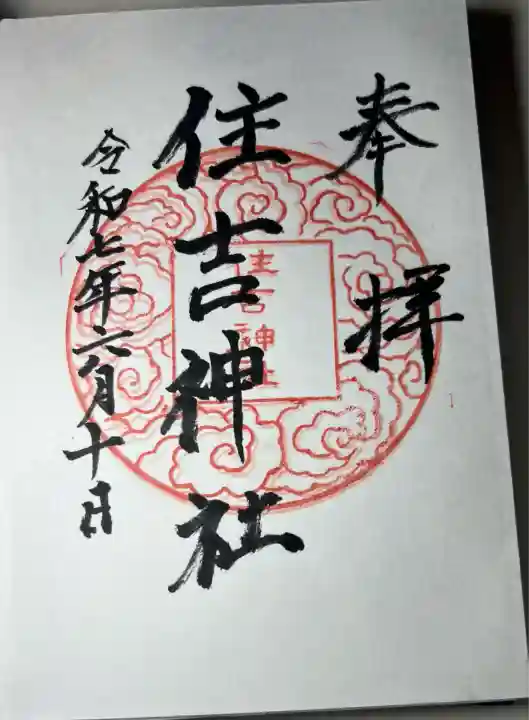 奉拝
住吉神社
住吉神社
令和七年六月十日